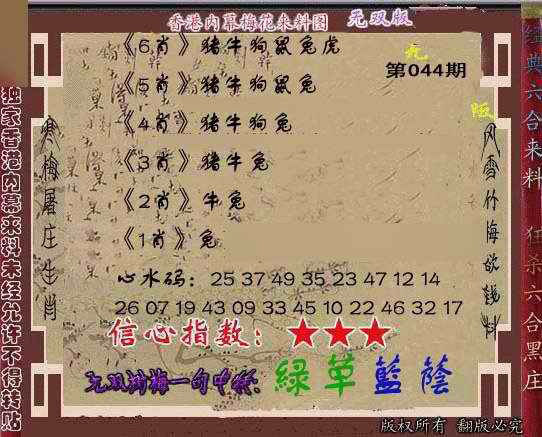 香港内幕梅花来料图 无双版
《6肖》猪牛狗鼠兔虎
第044期
《5肖》猪牛狗鼠兔
《4肖》猪牛狗兔
《3肖》猪牛兔
《2肖》牛兔
《1肖》兔
心水码：25 37 49 35 23 47 12 14
26 07 19 43 09 33 45 10 22 46 32 17
信心指数：★★★
绿草蓝荫
独家香港内幕来料未经允许不得转贴
寒梅屠庄生肖
经典六合来料 狂杀六合黑庄
版权所有 翻版必究